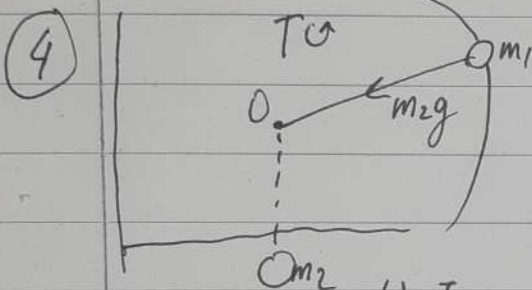 4
T↺
m₁
O
m₂g
m₂